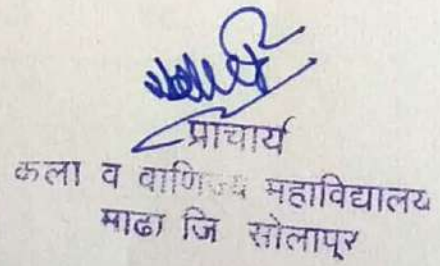 प्राचार्य
कला व वाणिज्य महाविद्यालय
माढा जि सोलापूर